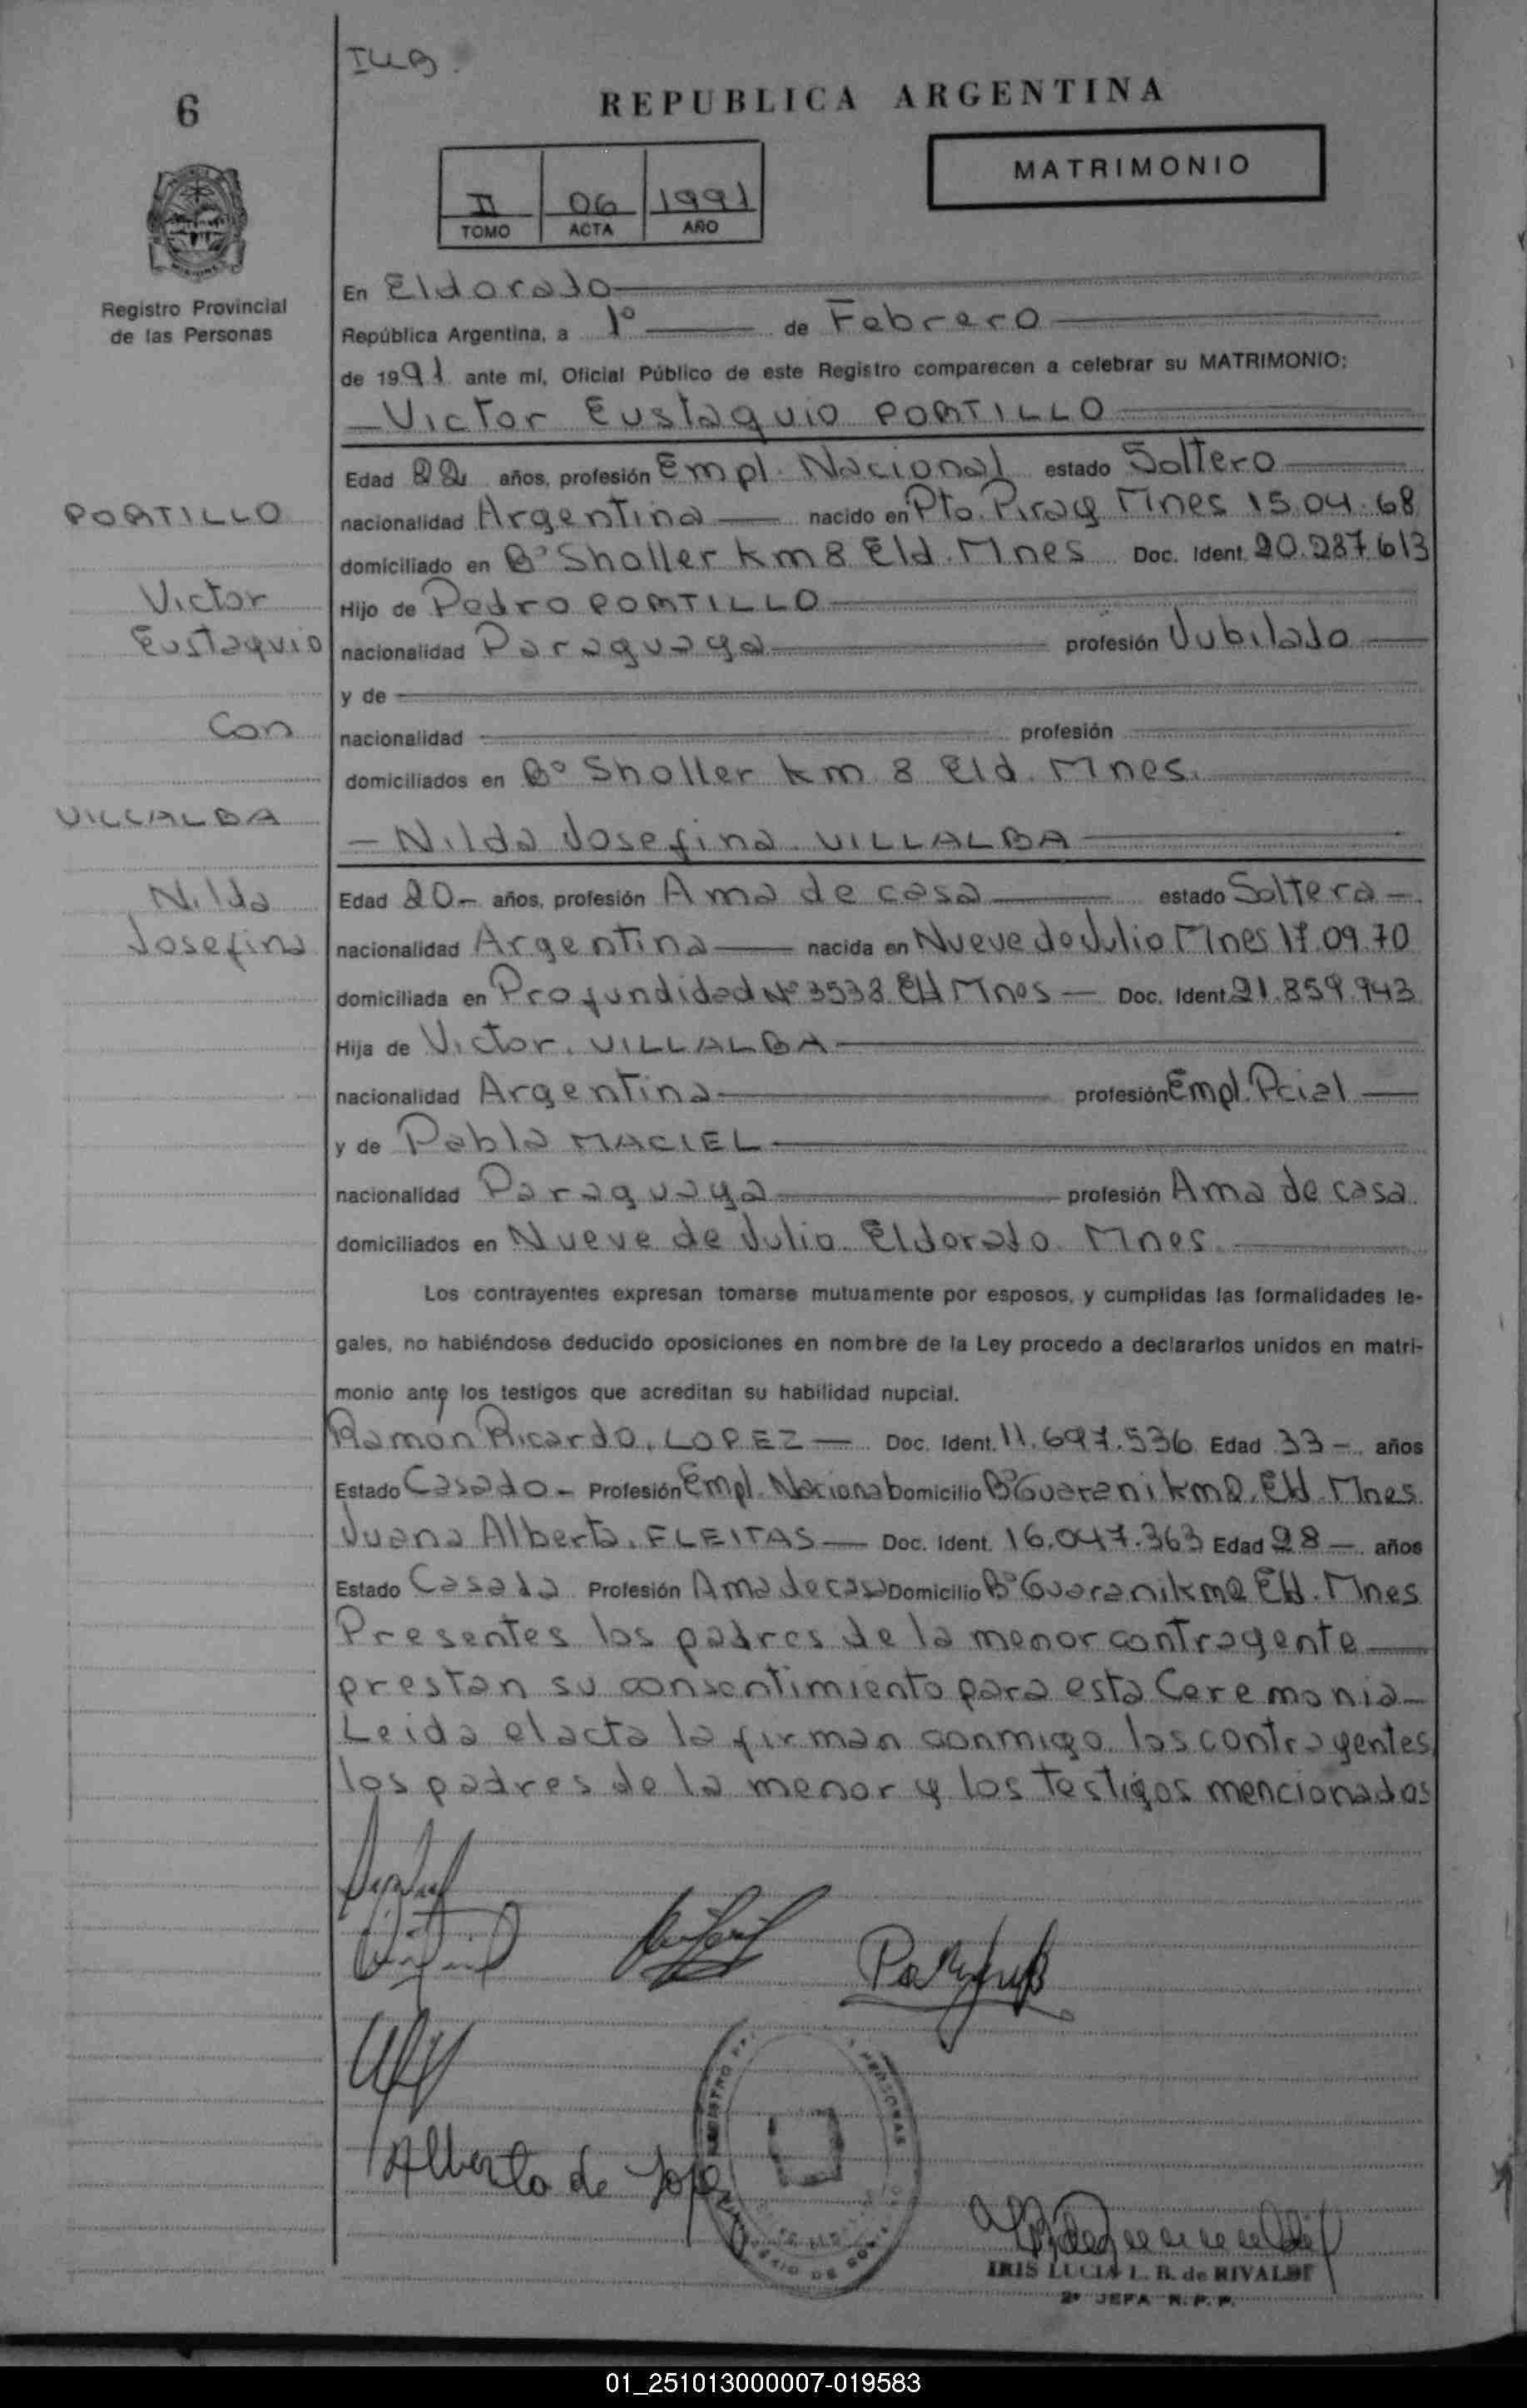 IUB.
6
REPUBLICA ARGENTINA
MATRIMONIO
II 06 1991
TOMO ACTA AÑO
Registro Provincial
de las Personas
En Eldorado
República Argentina, a 1º de Febrero
de 1991 ante mí, Oficial Público de este Registro comparecen a celebrar su MATRIMONIO:
— Victor Eustaquio PORTILLO
Edad 22 años, profesión Empl. Nacional estado Soltero
PORTILLO
nacionalidad Argentina — nacido en Pto. Piray Mnes 15.04.68
domiciliado en Bº Sholler km 8 Eld. Mnes Doc. Ident. 20.287.613
Victor
Hijo de Pedro PORTILLO
Eustaquio
nacionalidad Paraguaya profesión Jubilado
y de
Con
nacionalidad profesión
domiciliados en Bº Sholler km 8 Eld. Mnes.
VILLALBA
— Nilda Josefina VILLALBA
Nilda
Edad 20 — años, profesión Ama de casa estado Soltera —
Josefina
nacionalidad Argentina — nacida en Nueve de Julio Mnes 17.09.70
domiciliada en Profundidad Nº 3538 Eld Mnes — Doc. Ident. 21.859.943
Hija de Victor. VILLALBA
nacionalidad Argentina profesión Empl. Pcial
y de Pabla MACIEL
nacionalidad Paraguaya profesión Ama de casa
domiciliados en Nueve de Julio Eldorado Mnes.
Los contrayentes expresan tomarse mutuamente por esposos, y cumplidas las formalidades le-
gales, no habiéndose deducido oposiciones en nombre de la Ley procedo a declararlos unidos en matri-
monio ante los testigos que acreditan su habilidad nupcial.
Ramón Ricardo. LOPEZ — Doc. Ident. 11.697.536 Edad 33 — años
Estado Casado — Profesión Empl. Nacional Domicilio Bº Guarani km 2. Eld. Mnes
Juana Alberta. FLEITAS — Doc. Ident. 16.047.363 Edad 28 — años
Estado Casada Profesión Ama de casa Domicilio Bº Guarani km 2 Eld. Mnes
Presentes los padres de la menor contrayente
prestan su consentimiento para esta Ceremonia
Leida el acta la firman conmigo los contrayentes
los padres de la menor y los testigos mencionados
Alberta de Lopez
IRIS LUCIA L. B. de RIVALDI
2ª JEFA R. P. P.
01_251013000007-019583